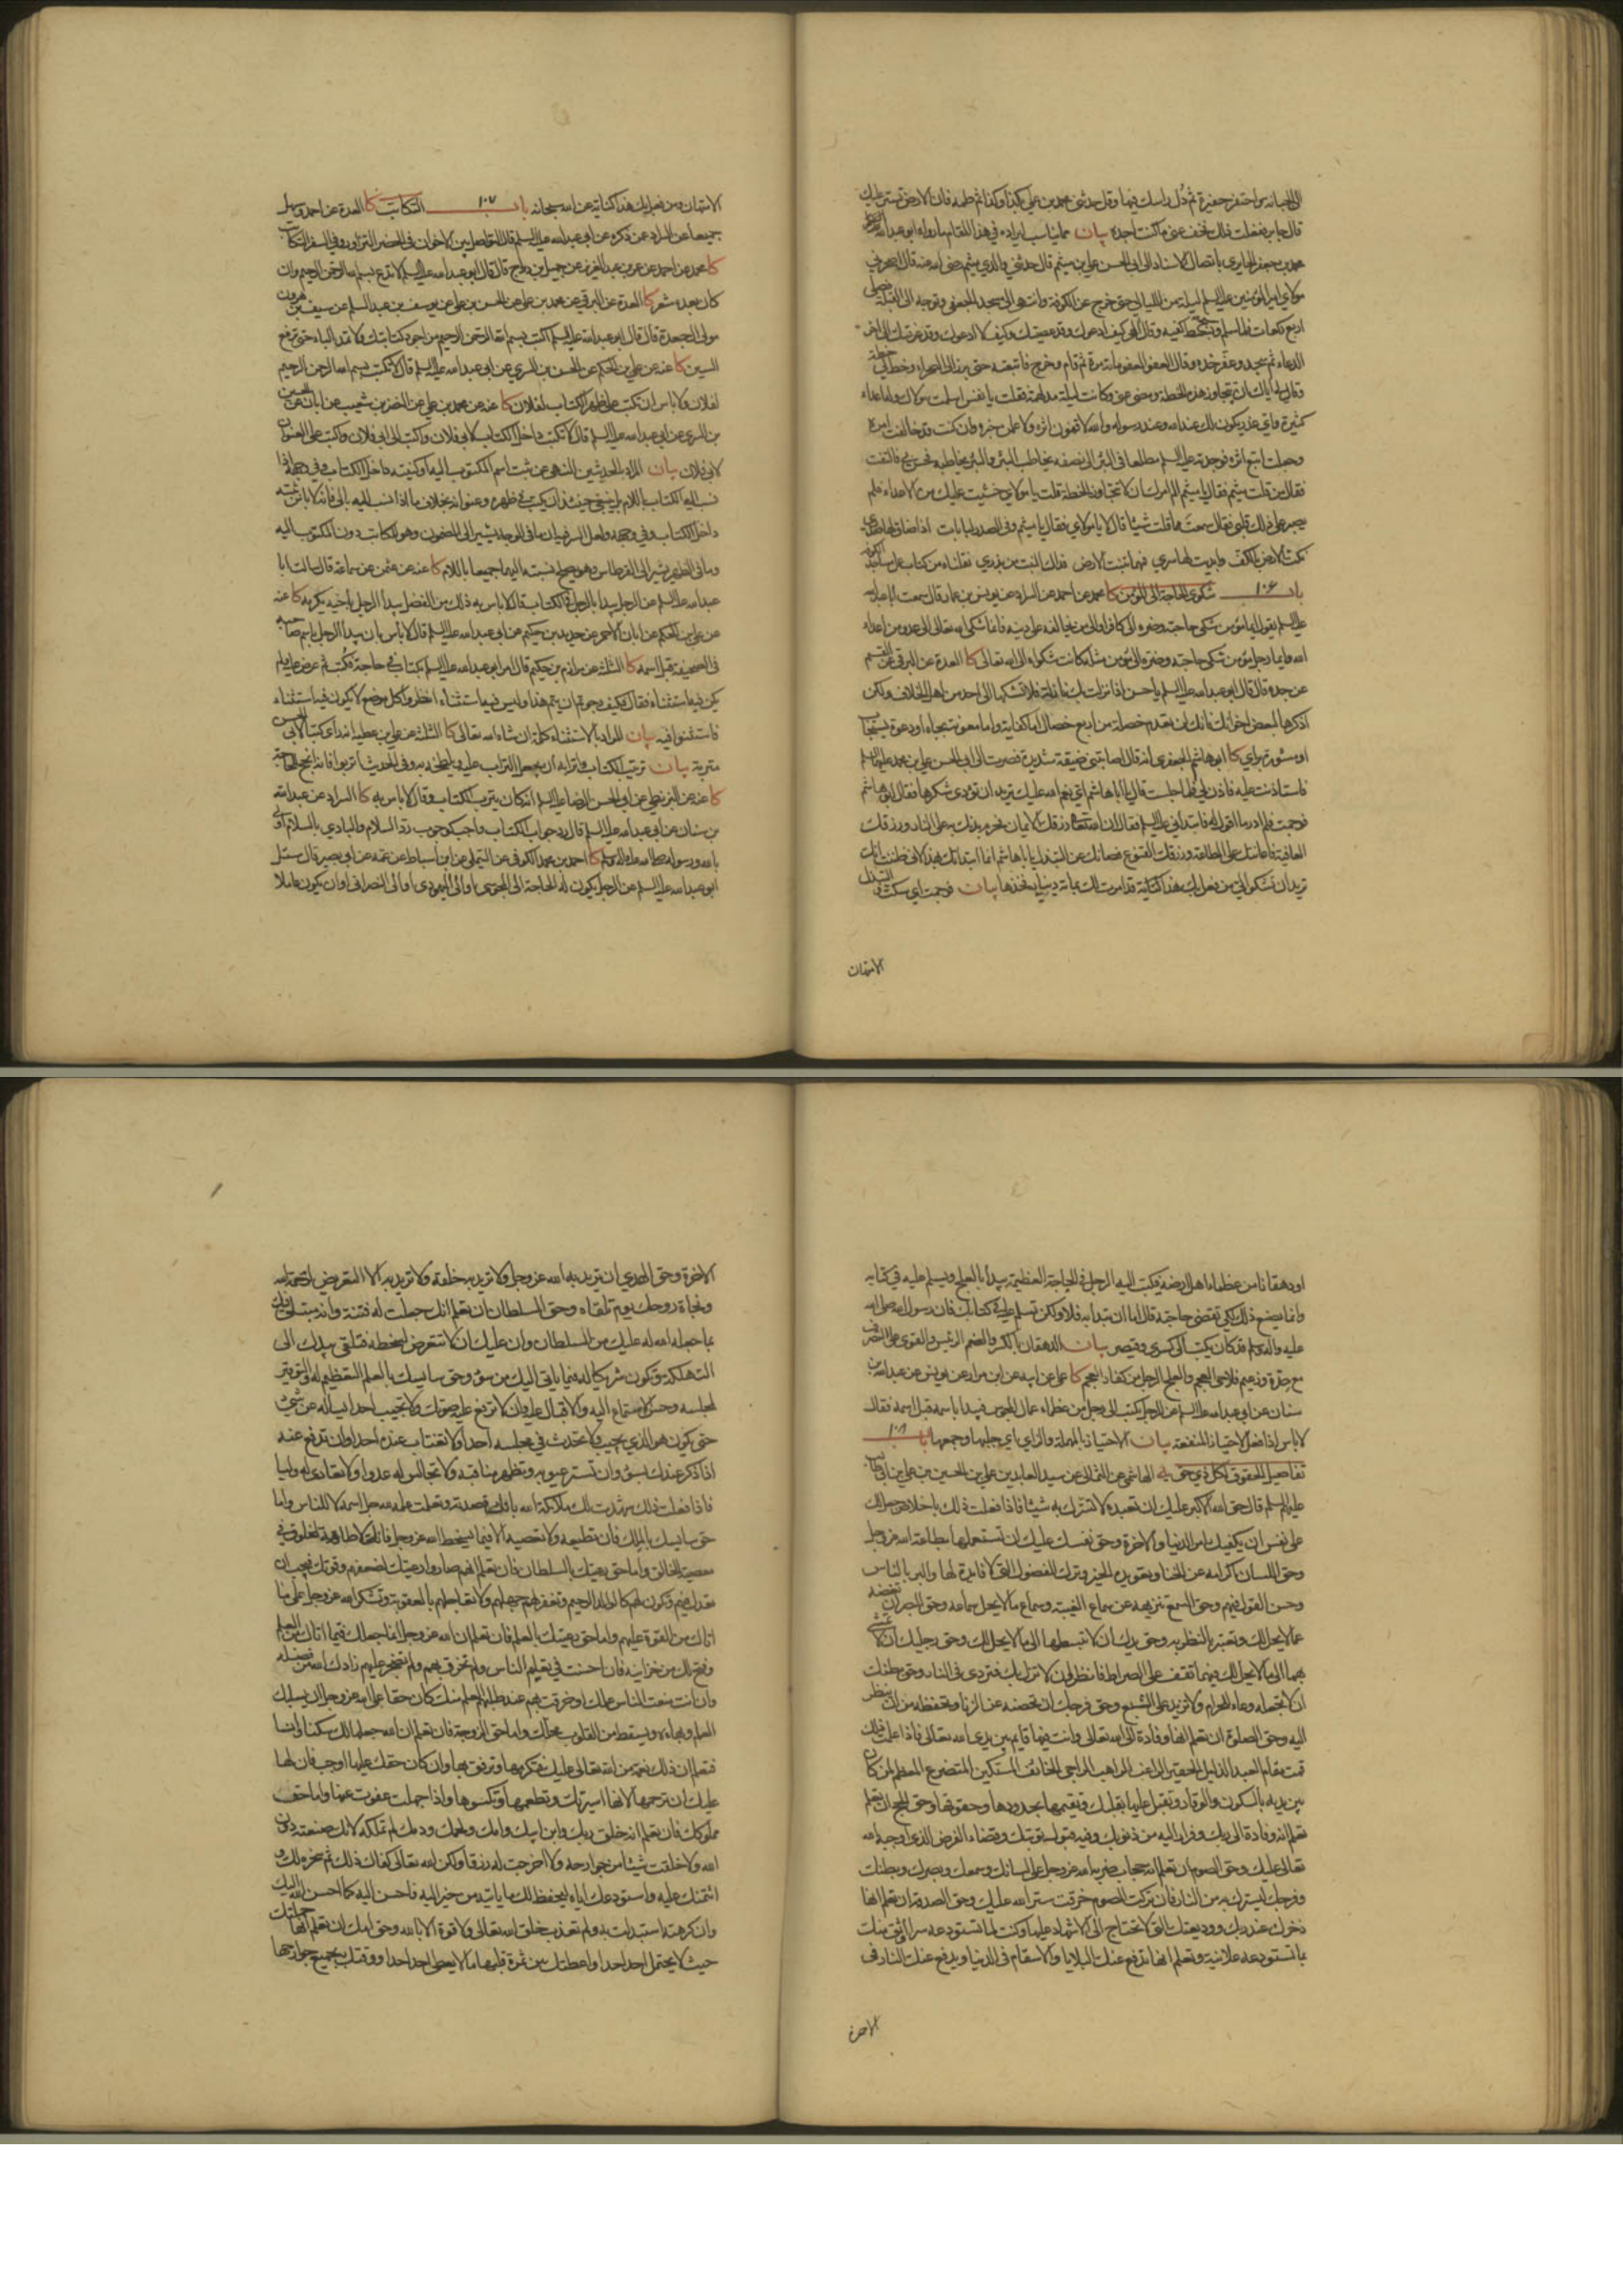 الى الجبانة واحتفر حفيرة ثم دل راسك فيها وقل حدثني محمد بن علي بكذا وكذا ثم طمه فان الارض تستر عليك
قال جابر ففعلت ذلك فخف عني ما كنت اجده بيان مما يناسب ايراده في هذا المقام ما رواه ابو عبد الله
محمد بن جعفر الحايري باتصال الاسناد الى ابي الحسن علي بن ميثم قال حدثني والدي ميثم رضي الله عنه قال اصحر بي
مولاي امير المؤمنين عليه السلم ليلة من الليالي حتى خرج عن الكوفة وانتهى الى مسجد الجعفي وتوجه الى القبلة فصلى
اربع ركعات فلما سلم وسبح بسط كفيه وقال الهي كيف ادعوك وقد عصيتك وكيف لا ادعوك وقد عرفتك الى اخر
الدعاء ثم سجد وعفر خده وقال العفو العفو مائة مرة ثم قام وخرج فاتبعته حتى برز الى الصحراء وخط لي خطة
وقال لي اياك ان تتجاوز هذه الخطة ومضى عني وكانت ليلة مدلهمة فقلت يا نفس اسلمت مولاك وله اعداء
كثيرة واي عذر يكون لك عند الله وعند رسوله والله لاقفون اثره ولاعلمن خبره وان كنت قد خالفت امره
وجعلت اتبع اثره فوجدته عليه السلم مطلعا في البئر الى نصفه يخاطب البئر والبئر يخاطبه فحس بي فالتفت
فقال من قلت ميثم فقال يا ميثم الم امرك ان لا تتجاوز الخطة قلت يا مولاي خشيت عليك من الاعداء فلم
يصبر على ذلك قلبي فقال سمعت مما قلت شيئا قال لا يا مولاي فقال يا ميثم وفي الصدر لبانات اذا ضاق لها صدري
نكت الارض بالكف وابديت لها سري فمهما تنبت الارض فذاك النبت من بذري نقلناه من كتاب
باب ١٠٦ شكوى الحاجة الى المؤمن كا محمد عن احمد عن السراد عن يونس بن عمار قال سمعت ابا عبد الله
عليه السلم يقول ايما مؤمن شكى حاجته وضره الى كافر او الى من يخالفه على دينه فانما شكى الله تعالى الى عدو من اعداء
الله وايما رجل مؤمن شكى حاجته وضره الى مؤمن مثله كانت شكواه الى الله تعالى كا العدة عن البرقي عن القسم
عن جده قال قال ابو عبد الله عليه السلم يا حسن اذا نزلت بك نازلة فلا تشكها الى احد من اهل الخلاف ولكن
اذكرها لبعض اخوانك فانك لن تعدم خصلة من اربع خصال اما كفاية واما معونة بجاه او دعوة يستجاب
او مشورة براي كا ابو هاشم الجعفري انه قال اصابتني ضيقة شديدة فصرت الى ابي الحسن علي بن محمد عليهما السلم
فاستاذنت عليه فاذن لي فلما جلست قال يا ابا هاشم اي نعم الله عليك تريد ان تؤدي شكرها فقال ابو هاشم
فوجمت فلم ادر ما اقول له فابتداني عليه السلم فقال ان الله رزقك الايمان فحرم بدنك به على النار ورزقك
العافية فاعانتك على الطاعة ورزقك القنوع فصانك عن التبذل يا ابا هاشم انما ابتداتك بهذا لاني ظننت انك
تريد ان تشكو الي من فعل بك هذا كناية قد امرت لك بمائة دينار فخذها بيان فوجمت اي سكت التبذل
الامتهان
الامتهان ومن فعل بك هذا كناية عن الله سبحانه باب ١٠٧ التكاتب كا العدة عن احمد وسهل
جميعا عن السراد عمن ذكره عن ابي عبد الله عليه السلم قال التواصل بين الاخوان في الحضر التزاور وفي السفر التكاتب
كا محمد عن احمد عن عمر بن عبد العزيز عن جميل بن دراج قال قال ابو عبد الله عليه السلم لا تدع بسم الله الرحمن الرحيم وان
كان بعده شعر كا العدة عن البرقي عن محمد بن علي عن الحسن بن علي عن يوسف بن عبد السلم عن سيف بن هرون
مولى ال جعدة قال قال ابو عبد الله عليه السلم اكتب بسم الله الرحمن الرحيم من اجود كتابتك ولا تمد الباء حتى ترفع
السين كا عنه عن علي بن الحكم عن الحسن بن السري عن ابي عبد الله عليه السلم قال لا تكتب بسم الله الرحمن الرحيم
لفلان ولا باس ان تكتب على ظهر الكتاب لفلان كا عنه عن محمد بن علي عن النضر بن شعيب عن ابان عن الحسن
بن السري عن ابي عبد الله عليه السلم قال لا تكتب داخل الكتاب لابي فلان واكتب الى ابي فلان واكتب على العنوان
لابي فلان بيان المراد بالحديثين النهي عن ثبت اسم المكتوب اليه او كنيته داخل الكتاب وفي وجهه اذا
نسب اليه الكتاب باللام بل ينبغي حينئذ ان يكتب في ظهره وعنوانه بخلاف ما اذا نسب اليه بالى فانه لا باس بثبته
داخل الكتاب وفي وجهه ولعل السر فيه ان ما في الوجه يشير الى المضمون وهو للكاتب دون المكتوب اليه
وما في الظهر يشير الى القرطاس وهو يصح نسبته اليهما جميعا باللام كا عنه عن عثمن عن سماعة قال سالت ابا
عبد الله عليه السلم عن الرجل يبدا بالرجل في الكتاب قال لا باس به ذلك من الفضل يبدا الرجل باخيه يكرمه كا عنه
عن علي بن الحكم عن ابان الاحمر عن حديد بن حكيم عن ابي عبد الله عليه السلم قال لا باس بان يبدا الرجل باسم صاحبه
في الصحيفة قبل اسمه كا الثلثة عن مرازم بن حكيم قال امر ابو عبد الله عليه السلم بكتاب في حاجة فكتب ثم عرض عليه ولم
يكن فيه استثناء فقال كيف رجوتم ان يتم هذا وليس فيه استثناء انظروا كل موضع لا يكون فيه استثناء
فاستثنوا فيه بيان المراد بالاستثناء كلمة ان شاء الله تعالى كا الثلثة عن علي بن عطية انه راى كتبا لابي الحسن
متربة بيان تتريب الكتاب واترابه ان يجعل التراب عليه ويلطخه به وفي الحديث اتربوا فانه انجح للحاجة
كا عنه عن البزنطي عن ابي الحسن الرضا عليه السلم انه كان يترب الكتاب وقال لا باس به كا السراد عن عبد الله
بن سنان عن ابي عبد الله عليه السلم قال رد جواب الكتاب واجب كوجوب رد السلام والبادي بالسلام اولى
بالله ورسوله صلى الله عليه واله وسلم كا احمد بن محمد الكوفي عن التيملي عن ابن اسباط عن عمه عن ابي بصير قال سئل
ابو عبد الله عليه السلم عن الرجل يكون له الحاجة الى المجوسي او الى اليهودي او الى النصراني او ان يكون عاملا
او دهقانا من عظماء اهل ارضه فيكتب اليه الرجل في الحاجة العظيمة يبدا بالعلج ويسلم عليه في كتابه
وانما يصنع ذلك لكي تقضى حاجته قال اما ان تبدا به فلا ولكن تسلم عليه في كتابك فان رسول الله صلى الله
عليه واله وسلم قد كان يكتب الى كسرى وقيصر بيان الدهقان بالكسر والضم الرئيس والقوي على التصرف
مع حدة وزعيم فلاحي العجم والعلج الرجل من كفار العجم كا علي عن ابيه عن ابن مرار عن يونس عن عبد الله بن
سنان عن ابي عبد الله عليه السلم عن الرجل يكتب الى رجل من عظماء عمال المجوس فيبدا باسمه قبل اسمه فقال
لا باس اذا فعل لاحتياز المنفعة بيان الاحتياز بالمهملة والزاي اي جلبها وجمعها باب ١٠٨
تفاصيل الحقوق لكل ذي حق يه الهاشمي عن الثمالي عن سيد العابدين علي بن الحسين بن علي بن ابي طالب
عليهم السلم قال حق الله الاكبر عليك ان تعبده لا تشرك به شيئا فاذا فعلت ذلك باخلاص جعل لك
على نفسه ان يكفيك امر الدنيا والاخرة وحق نفسك عليك ان تستعملها بطاعة الله عز وجل
وحق اللسان اكرامه عن الخنا وتعويده الخير وترك الفضول التي لا فايدة لها والبر بالناس
وحسن القول فيهم وحق السمع تنزيهه عن سماع الغيبة وسماع ما لا يحل سماعه وحق البصر ان تغضه
عما لا يحل لك وتعتبر بالنظر به وحق يدك ان لا تبسطها الى ما لا يحل لك وحق رجليك ان لا تمشي
بهما الى ما لا يحل لك فبهما تقف على الصراط فانظر ان لا تزل بك فتردى في النار وحق بطنك
ان لا تجعله وعاء للحرام ولا تزيد على الشبع وحق فرجك ان تحصنه عن الزنا وتحفظه من ان ينظر
اليه وحق الصلوة ان تعلم انها وفادة الى الله تعالى وانت فيها قايم بين يدي الله تعالى فاذا علمت ذلك
قمت مقام العبد الذليل الحقير الراغب الراهب الراجي الخائف المستكين المتضرع المعظم لمن كان
بين يديه بالسكون والوقار وتقبل عليها بقلبك وتقيمها بحدودها وحقوقها وحق الحج ان تعلم
انه وفادة الى ربك وفرار اليه من ذنوبك وفيه قبول توبتك وقضاء الفرض الذي اوجبه الله
تعالى عليك وحق الصوم ان تعلم انه حجاب ضربه الله عز وجل على لسانك وسمعك وبصرك وبطنك
وفرجك ليسترك به من النار فان تركت الصوم خرقت ستر الله عليك وحق الصدقة ان تعلم انها
ذخرك عند ربك ووديعتك التي لا تحتاج الى الاشهاد عليها وكنت لما تستودعه سرا اوثق منك
بما تستودعه علانية وتعلم انها تدفع عنك البلايا والاسقام في الدنيا وتدفع عنك النار في
الاخرة
الاخرة وحق الهدي ان تريد به الله عز وجل ولا تريد به خلقه ولا تريد به الا التعرض لرحمة الله
ونجاة روحك يوم تلقاه وحق السلطان ان تعلم انك جعلت له فتنة وانه مبتلى فيك
بما جعله الله له عليك من السلطان وان عليك ان لا تتعرض لسخطه فتلقي بيدك الى
التهلكة وتكون شريكا له فيما ياتي اليك من سوء وحق سايسك بالعلم التعظيم له والتوقير
لمجلسه وحسن الاستماع اليه والاقبال عليه وان لا ترفع عليه صوتك ولا تجيب احدا يساله عن شيء
حتى يكون هو الذي يجيب ولا تحدث في مجلسه احدا ولا تغتاب عنده احدا وان تدفع عنه
اذا ذكر عندك بسوء وان تستر عيوبه وتظهر مناقبه ولا تجالس له عدوا ولا تعادي له وليا
فاذا فعلت ذلك شهدت لك ملائكة الله بانك قصدته وتعلمت علمه لله جل اسمه لا للناس واما
حق سايسك بالملك فان تطيعه ولا تعصيه الا فيما يسخط الله عز وجل فانه لا طاعة لمخلوق في
معصية الخالق واما حق رعيتك بالسلطان فان تعلم انهم صاروا رعيتك لضعفهم وقوتك فيجب ان
تعدل فيهم وتكون لهم كالوالد الرحيم وتغفر لهم جهلهم ولا تعاجلهم بالعقوبة وتشكر الله عز وجل على ما
اتاك من القوة عليهم واما حق رعيتك بالعلم فان تعلم ان الله عز وجل انما جعلك قيما اتاك من العلم
وفتح لك من خزاينه فان احسنت في تعليم الناس ولم تخرق بهم ولم تتضجر عليهم زادك الله من فضله
وان انت منعت الناس علمك او خرقت بهم عند طلبهم العلم منك كان حقا على الله عز وجل ان يسلبك
العلم وبهاءه ويسقط من القلوب محلك واما حق الزوجة فان تعلم ان الله جعلها لك سكنا وانسا
فتعلم ان ذلك نعمة من الله تعالى عليك فتكرمها وترفق بها وان كان حقك عليها اوجب فان لها
عليك ان ترحمها لانها اسيرتك وتطعمها وتكسوها واذا جهلت عفوت عنها واما حق
مملوكك فان تعلم انه خلق ربك وابن ابيك وامك ولحمك ودمك لم تملكه لانك صنعته دون
الله ولا خلقت شيئا من جوارحه ولا اخرجت له رزقا ولكن الله تعالى كفاك ذلك ثم سخره لك و
ائتمنك عليه واستودعك اياه ليحفظ لك ما ياتيه من خير اليه فاحسن اليه كما احسن الله اليك
وان كرهته استبدلت به ولم تعذب خلق الله تعالى ولا قوة الا بالله وحق امك ان تعلم انها حملتك
حيث لا يحتمل احد احدا واعطتك من ثمرة قلبها ما لا يعطي احد احدا ووقتك بجميع جوارحها